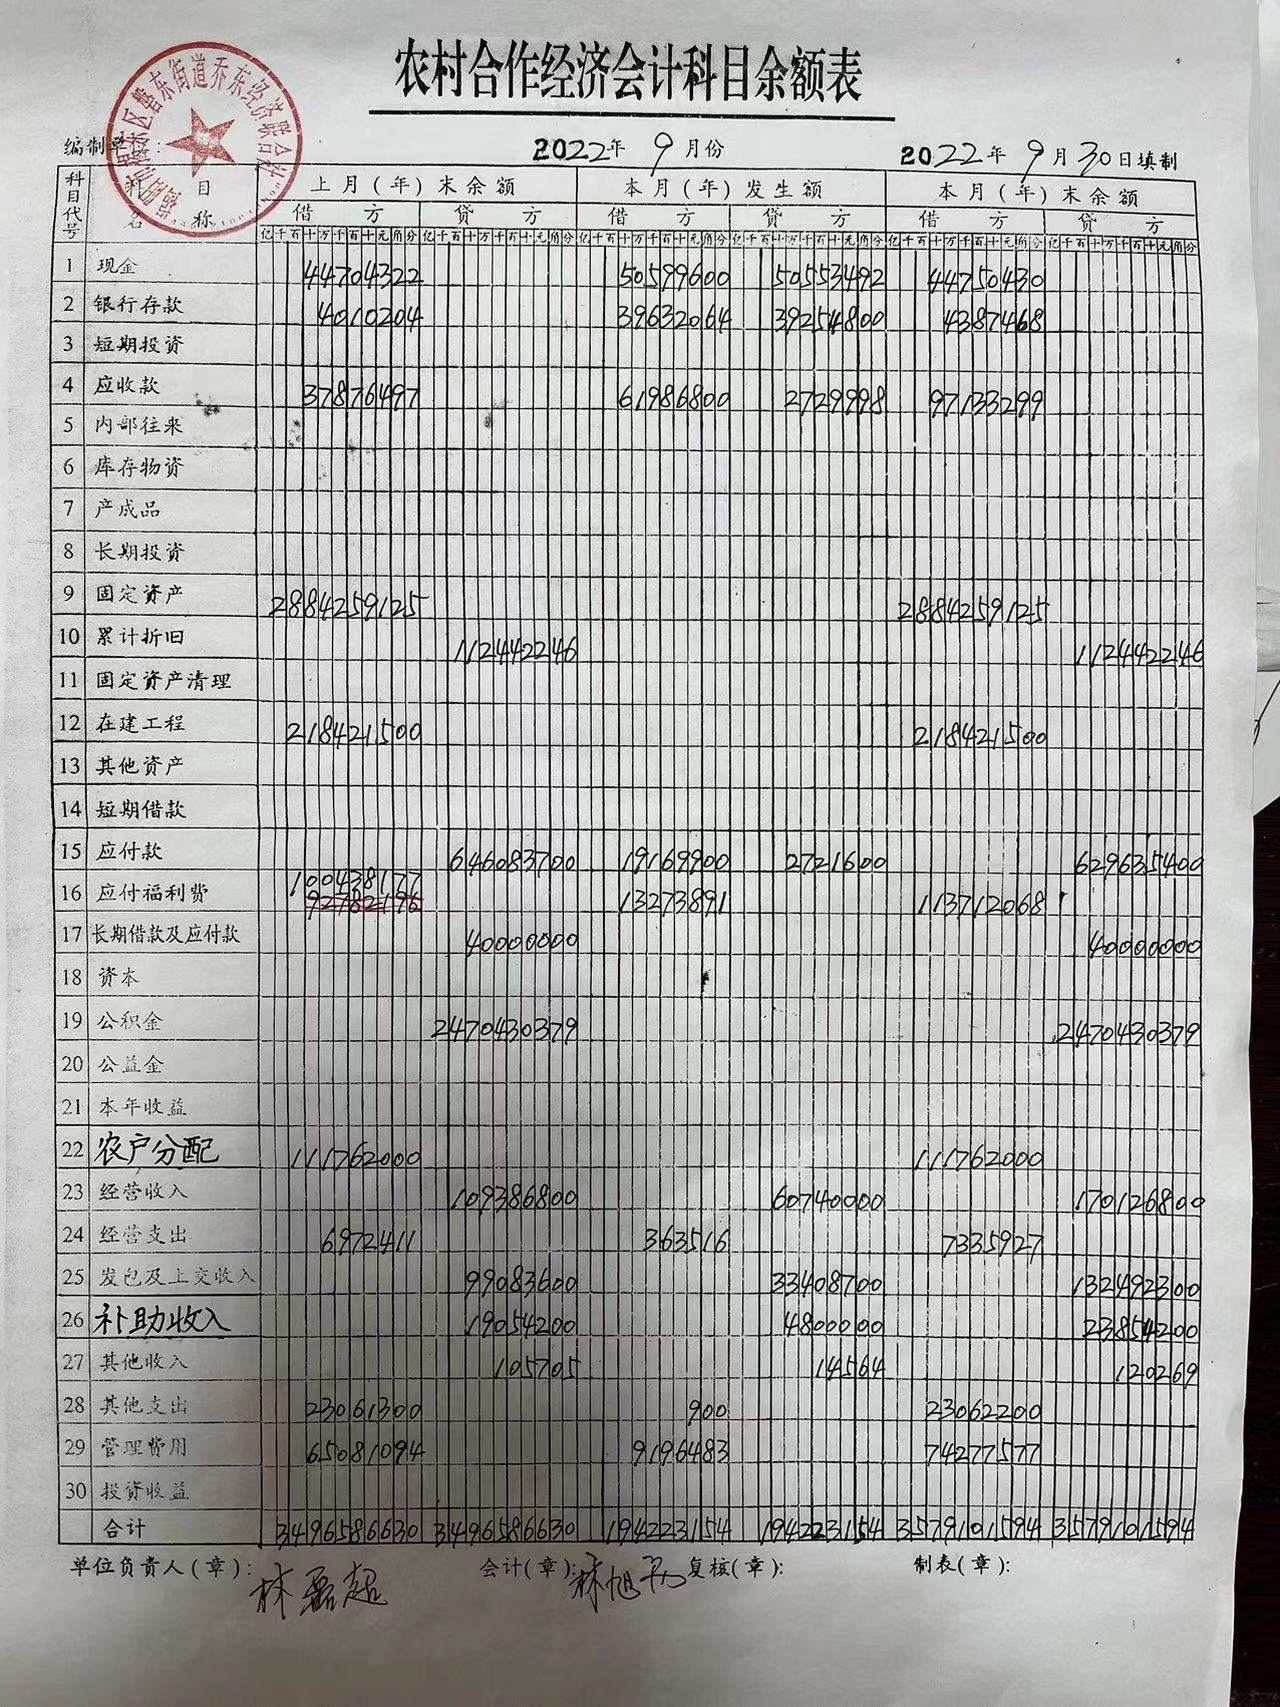 农村合作经济会计科目余额表
磐东街道乔东经济联合社
编制单位: 2022年 9月份 2022年 9月30日填制
科目代号 科目名称 上月(年)末余额 本月(年)发生额 本月(年)末余额
借方 贷方 借方 贷方 借方 贷方
亿千百十万千百十元角分 亿千百十万千百十元角分 亿千百十万千百十元角分 亿千百十万千百十元角分 亿千百十万千百十元角分 亿千百十万千百十元角分
1 现金 44704322 50599600 50553492 44750430
2 银行存款 4010204 39632064 39254800 4387468
3 短期投资
4 应收款 37876497 61986800 2729998 97133299
5 内部往来
6 库存物资
7 产成品
8 长期投资
9 固定资产 2884259125 2884259125
10 累计折旧 112442246 112442246
11 固定资产清理
12 在建工程 218421500 218421500
13 其他资产
14 短期借款
15 应付款 646083700 19169900 2721600 629635400
100438177
16 应付福利费 92782196 13273891 113712068
17 长期借款及应付款 40000000 40000000
18 资本
19 公积金 2470430379 2470430379
20 公益金
21 本年收益
22 农户分配 111762000 111762000
23 经营收入 109386800 60740000 170126800
24 经营支出 6972411 363516 7335927
25 发包及上交收入 99083600 33408700 132492300
26 补助收入 19054200 4800000 23854200
27 其他收入 105705 14564 120269
28 其他支出 23061300 900 23062200
29 管理费用 65081094 9196483 74277577
30 投资收益
合计 3496586630 3496586630 194223154 194223154 3579101594 3579101594
单位负责人(章): 林磊超 会计(章): 林旭 复核(章): 制表(章):